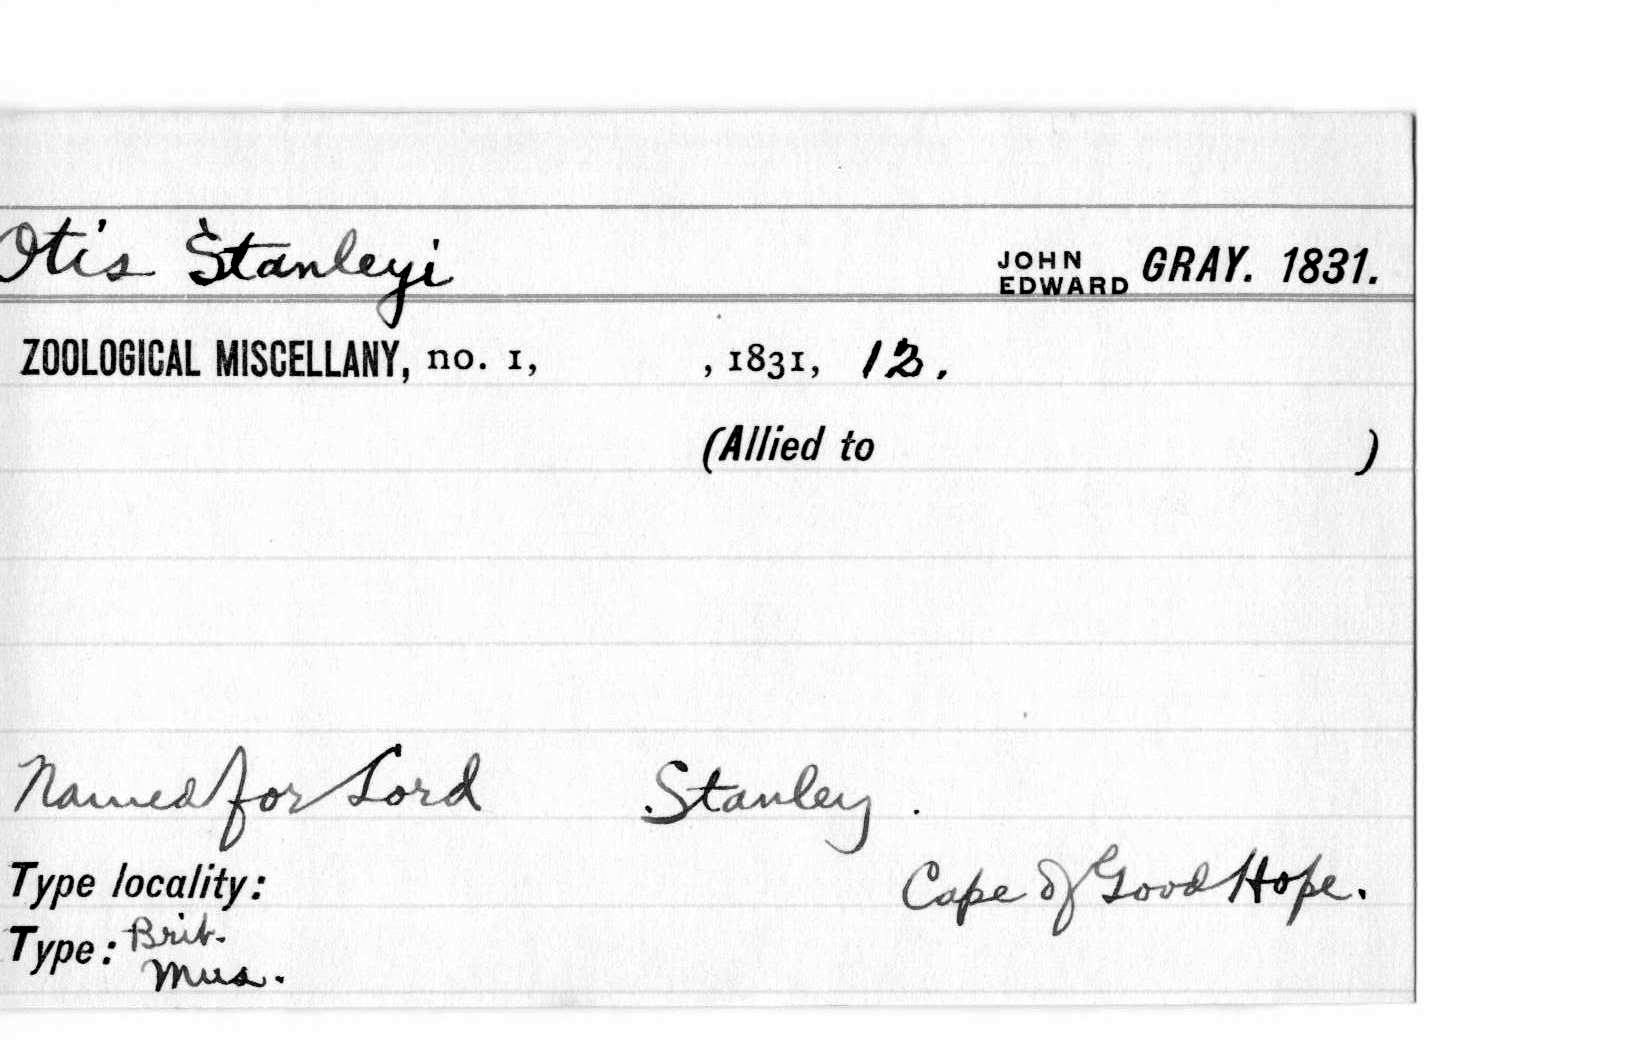 Otis Stanleyi JOHN EDWARD GRAY. 1831.
ZOOLOGICAL MISCELLANY, no. 1, , 1831, 12.
(Allied to )
Named for Lord Stanley.
Type locality: Cape of Good Hope.
Type: Brit. Mus.